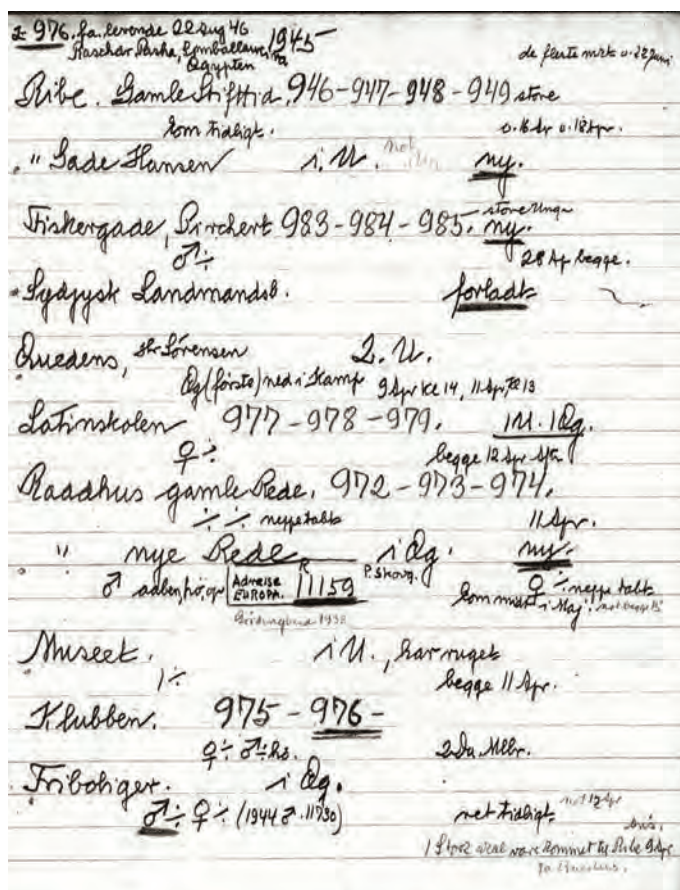 2 976. fa. levende 22 Aug 46 1945
Raschar Pasha, Omballawi, Pa
Ægypten
de fleste mrk o. 22 Juni
Ribe. Gamle Stiftid. 946-947-948-949 store
kom tidligt. o. 16 Apr o. 18 Apr.
" Gade Hansen 1 U. ny.
Fiskergade, 983-984-985. store Unge ny.
♂ ÷ 28 Ap begge.
Sydjysk Landmandsb. forladt
Quedens, Skr Sørensen 2. U.
Æg (første) ned i Kamp 9 Apr Kl 14, 11 Apr, Kl 13
Latinskolen 977-978-979. 1 U. 1 Æg.
♀ ÷ begge 12 Apr
Raadhus gamle Rede. 972-973-974.
÷ ÷ neppe tabt 11 Apr.
" nye Rede 1 Æg. ny.
♂ aaben, hø, op Adresse EUROPA. R 11159 P. Skovg. ♀ ÷ neppe tabt
kom i Maj.
1938
Museet. 1 U., har ruget
1 ÷ begge 11 Apr.
Klubben. 975 - 976 -
♀ ÷ ♂ ÷ hø. 2 Du Mlbr.
Friboliger. 1 Æg.
♂ ÷ ♀ ÷ (1944 ♂ 11790) net tidligt not 12 Apr
1 Stork skal være kommet til Ribe 9 Apr